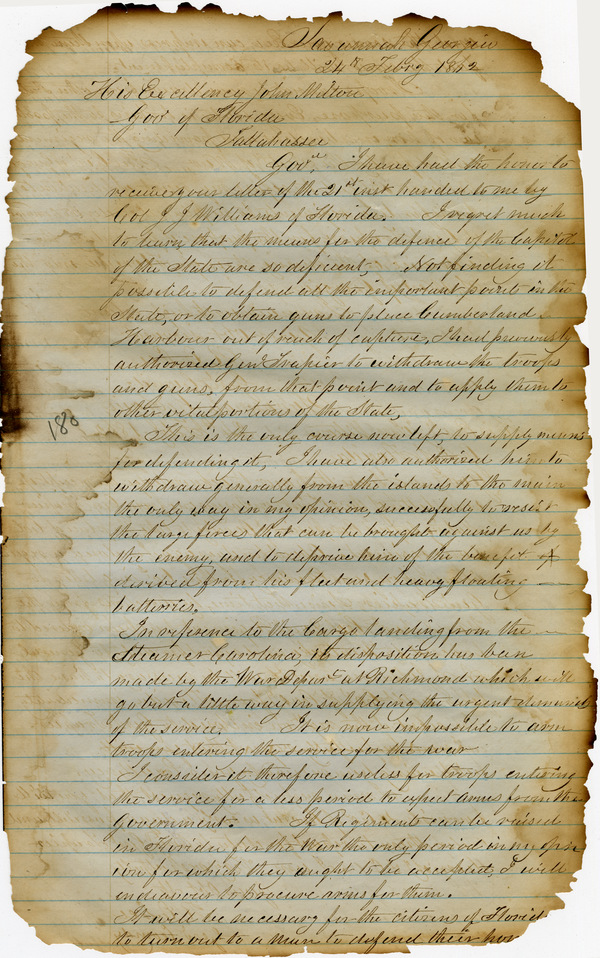 Savannah Georgia
24th Febry 1862
His Excellency John Milton
Gov of Florida
Tallahassee
Govr, I have had the honor to
receive your letter of the 21st inst handed to me by
Col J J Williams of Florida. I regret much
to learn that the means for the defence of the Capitol
of the State are so deficient, Not finding it
possible to defend all the important points in the
State, or to obtain guns to place Cumberland
Harbour out of reach of capture, I had previously
authorized Genl Trapier to withdraw the troops
and guns, from that point and to apply them to
other vital portions of the State,
180
This is the only course now left, to supply means
for defending it, I have also authorized him to
withdraw generally from the islands to the main
the only way in my opinion, successfully to resist
the large forces that can be brought against us by
the enemy, and to deprive him of the benefit
derived from his fleet and heavy floating
batteries.
In reference to the Cargo landing from the
Steamer Carolina, its disposition has been
made by the War Depart at Richmond which will
go but a little way in supplying the urgent demands
of the service. It is now impossible to arm
troops entering the service for the war
I consider it therefore useless for troops entering
the service for a less period to expect arms from the
Government. If Regiments can be raised
in Florida for the War the only period in my opin
ion for which they ought to be accepted, I will
endeavour to procure arms for them.
It will be necessary for the citizens of Florid
to turn out to a man to defend their ho